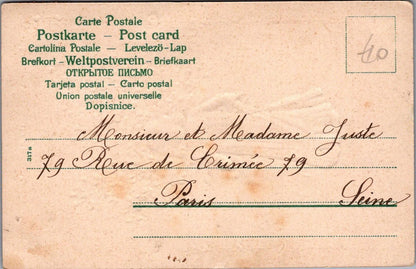 Carte Postale
Postkarte – Post card
Cartolina Postale – Levelező-Lap
Brefkort – Weltpostverein – Briefkaart
ОТКРЫТОЕ ПИСЬМО
Tarjeta postal – Carto postal
Union postale universelle
Dopisnice.
40
Monsieur et Madame Juste
317a
79 Rue de Crimée 79
Paris Seine